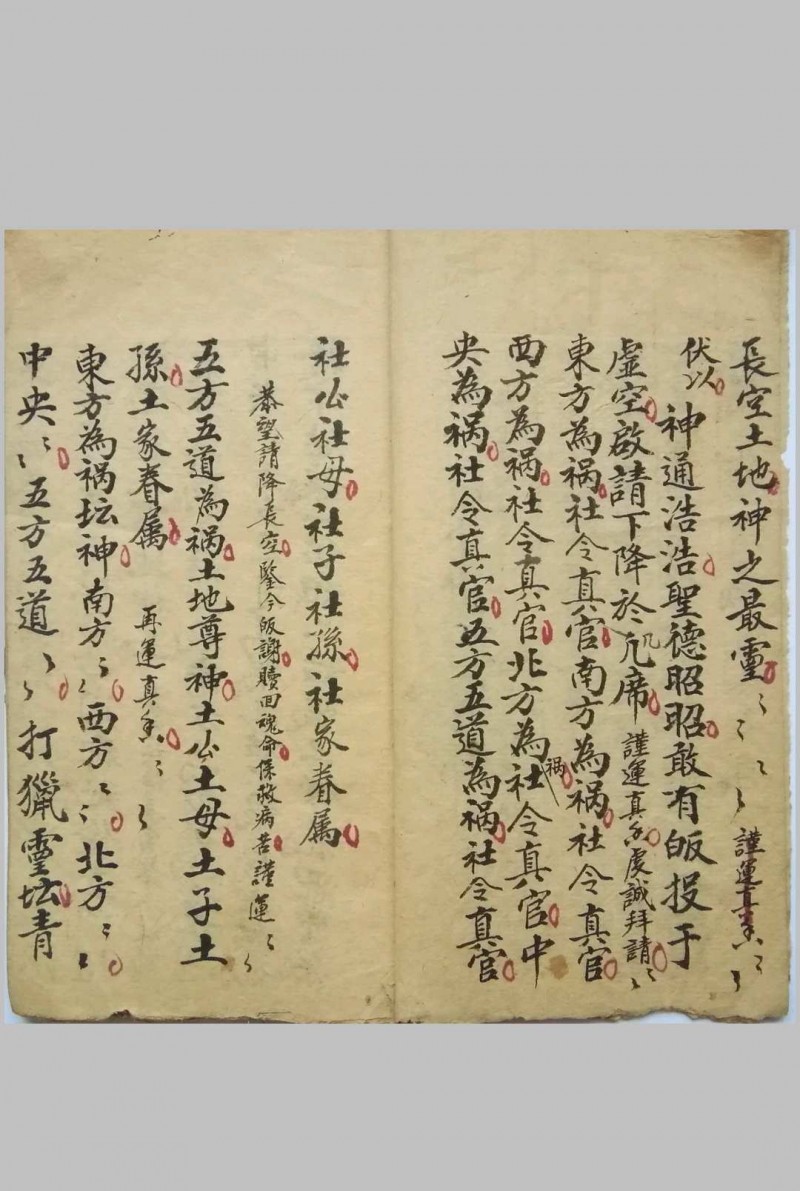 長空土地神之最靈〻〻〻〻謹運真香〻〻〻
伏以神通浩浩聖德昭昭敢有皈投于
虛空啟請下降於几席謹運真香虔誠拜請〻〻
東方為禍社令真官南方為禍社令真官
西方為禍社令真官北方為禍社令真官中
央為禍社令真官五方五道為禍社令真官
社公社母社子社孫社家眷属
恭望請降長空鑒今皈謝贖回魂命保救病苦謹運〻〻
五方五道為禍土地尊神土公土母土子土
孫土家眷属 再運真香〻〻
東方為禍坛神南方〻〻西方〻〻北方〻〻
中央〻〻五方五道〻〻打獵靈坛青